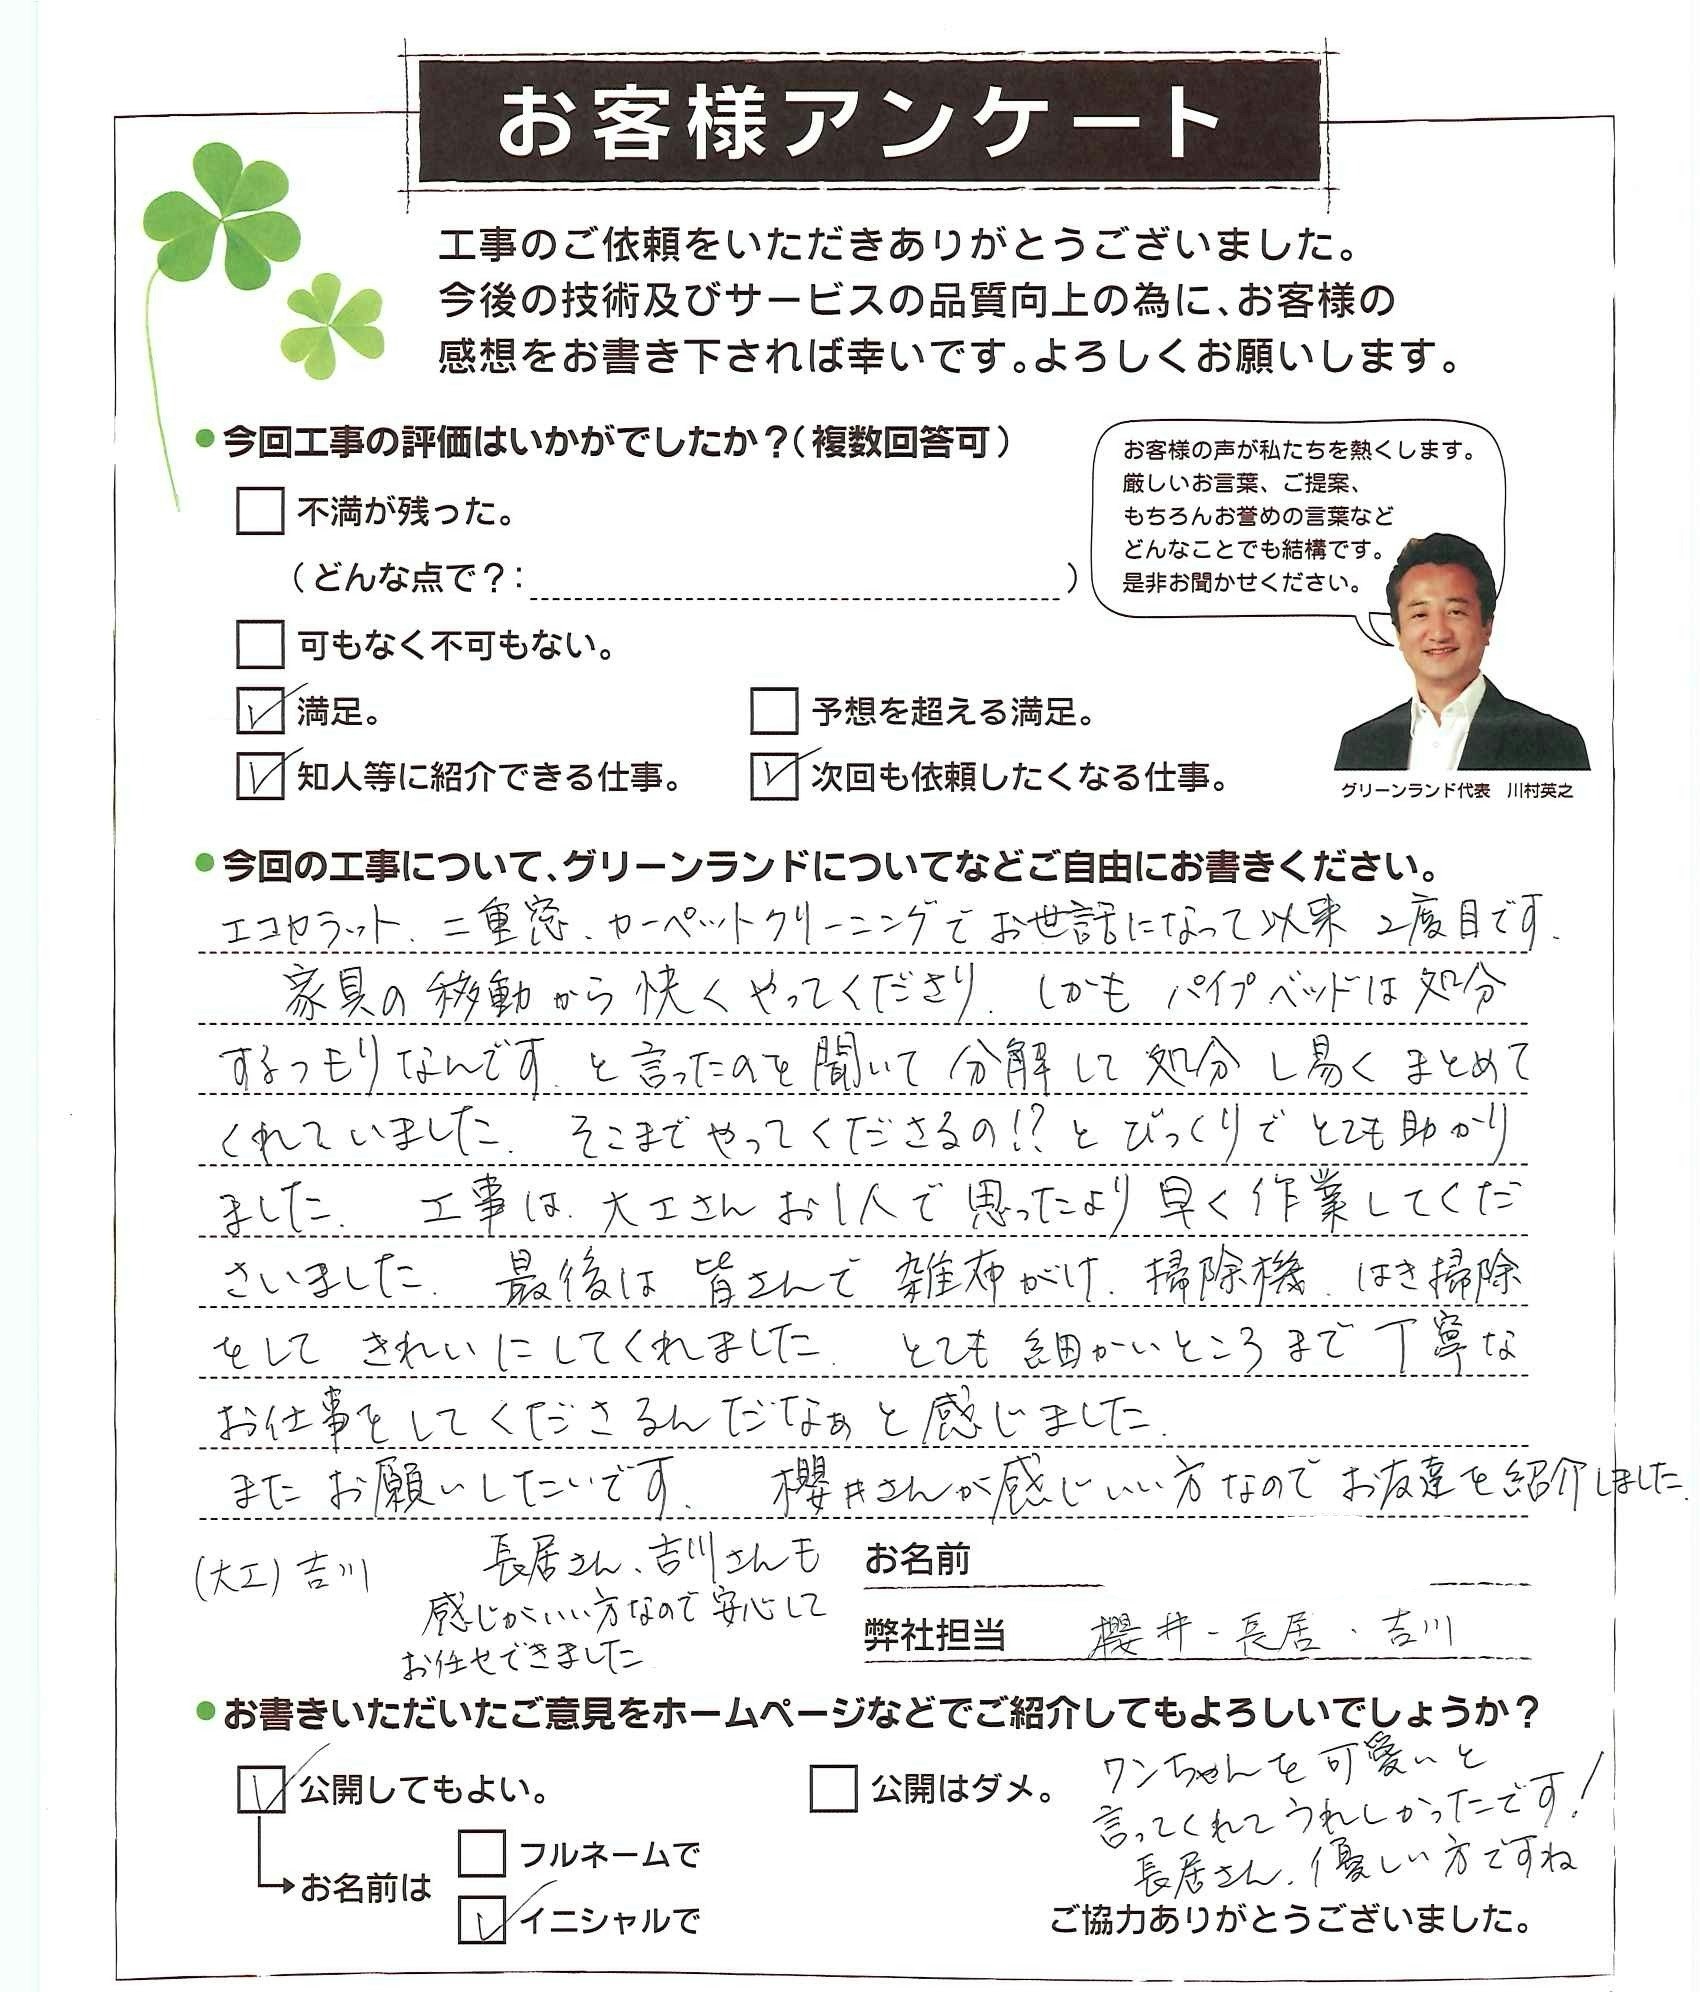 お客様アンケート
工事のご依頼をいただきありがとうございました。
今後の技術及びサービスの品質向上の為に、お客様の
感想をお書き下されば幸いです。よろしくお願いします。
●今回工事の評価はいかがでしたか？（複数回答可）
不満が残った。
（どんな点で？：　）
可もなく不可もない。
満足。
予想を超える満足。
知人等に紹介できる仕事。
次回も依頼したくなる仕事。
お客様の声が私たちを熱くします。
厳しいお言葉、ご提案、
もちろんお誉めの言葉など
どんなことでも結構です。
是非お聞かせください。
グリーンランド代表　川村英之
●今回の工事について、グリーンランドについてなどご自由にお書きください。
エコカラット、二重窓、カーペットクリーニングでお世話になって以来 2度目です。
家具の移動から快くやってくださり、しかもパイプベッドは処分
するつもりなんです、と言ったのを聞いて分解して処分し易くまとめて
くれていました。そこまでやってくださるの!?とびっくりでとても助かり
ました。工事は、大工さんお1人で思ったより早く作業してくだ
さいました。最後は皆さんで雑布がけ、掃除機、はき掃除
をしてきれいにしてくれました。とても細かいところまで丁寧な
お仕事をしてくださるんだなぁと感じました。
またお願いしたいです。櫻井さんが感じいい方なのでお友達を紹介しました。
(大工)吉川
長居さん、吉川さんも
感じがいい方なので安心して
お任せできました
お名前
弊社担当 櫻井-長居・吉川
●お書きいただいたご意見をホームページなどでご紹介してもよろしいでしょうか？
公開してもよい。
公開はダメ。
お名前は
フルネームで
イニシャルで
ワンちゃんを可愛いと
言ってくれてうれしかったです！
長居さん、優しい方ですね
ご協力ありがとうございました。